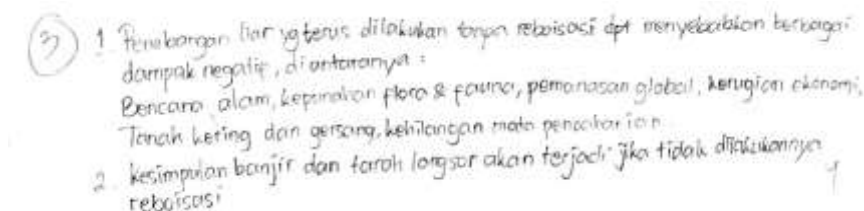 3 1 Penebangan liar yg terus dilakukan tanpa reboisasi dpt menyebabkan berbagai
dampak negatif, diantaranya :
Bencana alam, kepunahan flora & fauna, pemanasan global, kerugian ekonomi,
Tanah kering dan gersang, kehilangan mata pencaharian
2. kesimpulan banjir dan tanah longsor akan terjadi jika tidak dilakukannya
reboisasi